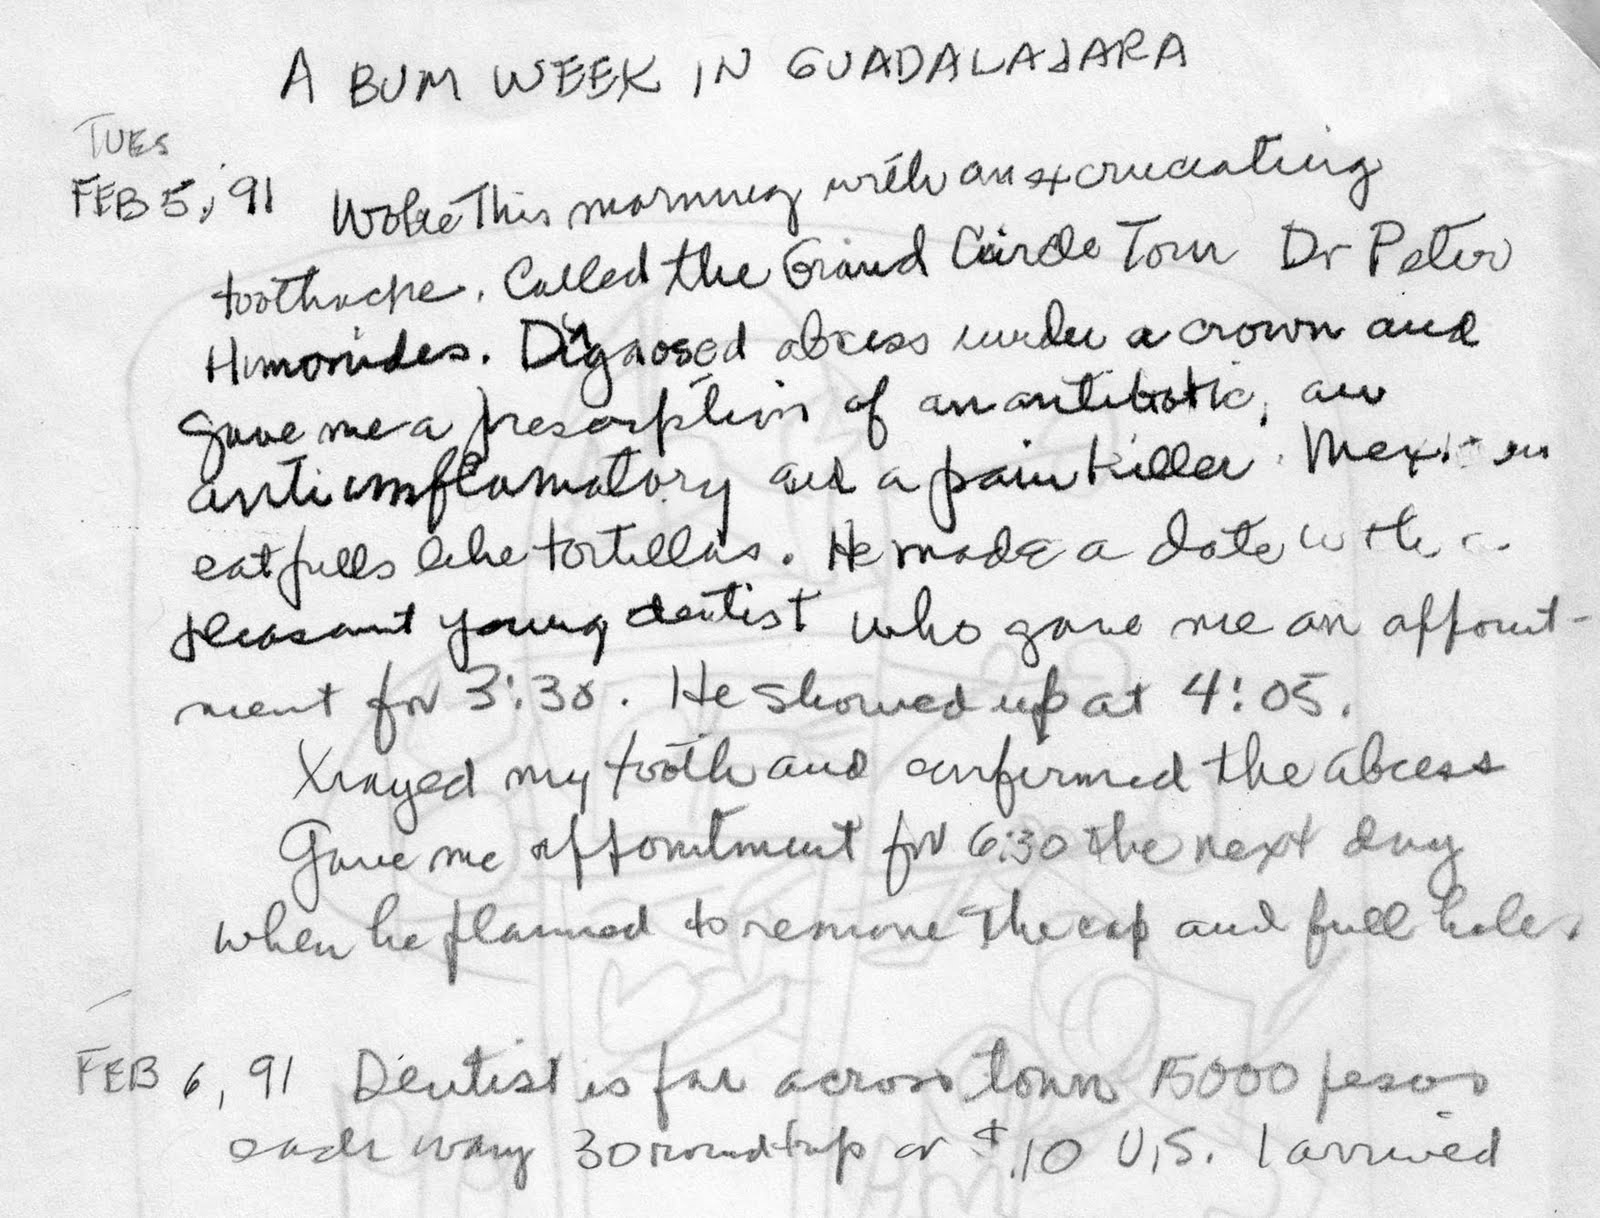 A BUM WEEK IN GUADALAJARA
TUES
FEB 5, '91 Woke This morning with an excruciating
toothache. Called the Grand Circle Tour Dr Peter
Himonides. Dignosed abcess under a crown and
gave me a prescription of an antibiotic, an
anti imflamatory and a pain killer. Mexicans
eat pills like tortillas. He made a date with a
pleasant young dentist who gave me an appoint-
ment for 3:30. He showed up at 4:05.
Xrayed my tooth and confirmed the abcess
Gave me appointment for 6:30 the next day
when he planned to remove the cap and full hole.
FEB 6, 91 Dentist is far across town 15000 pesos
each way 30 round trip or $.10 U.S. I arrived